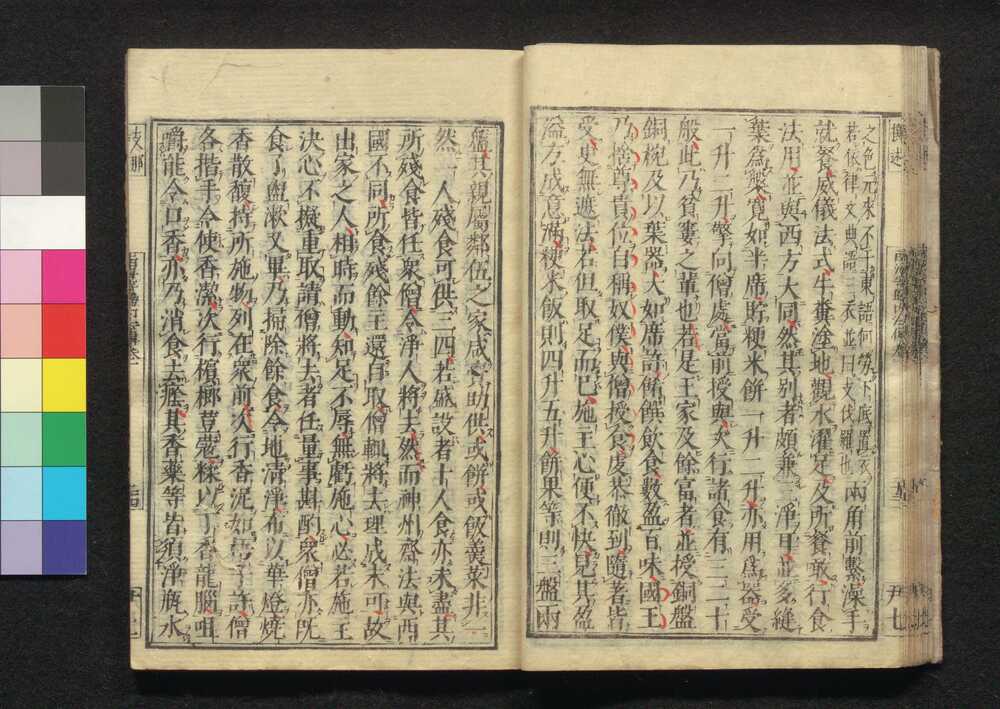 之色元來不干東語何勞下底置衣
若依律文典語三衣並曰支伐羅也
兩角前繫澡手
就餐威儀法式牛糞塗地觀水濯足及所餐噉行食
法用並與西方大同然其別者頗兼三淨耳並多縫
葉爲槃寬如半席貯粳米餅一升二升亦用爲器受
一升二升擎向僧處當前授與次行諸食有三二十
般此乃貧窶之輩也若是王家及餘富者並授銅盤
銅椀及以葉器大如席許餚饌飲食數盈百味國王
乃捨尊貴位自稱奴僕與僧授食虔恭徹到隨著皆
受更無遮法若但取足而已施主心便不快見其盈
溢方成意滿粳米飯則四升五升餅果等則三盤兩
盤其親屬鄰伍之家咸齎助供或餠或飯羹菜非一
然一人殘食可供三四若盛設者十人食亦未盡其
所殘食皆任衆僧令淨人將去然而神州齋法與西
國不同所食殘餘主還自取僧輒將去理成未可故
出家之人相時而動知足不辱無虧施心必若施主
決心不擬重取請僧將去者任量事斟酌衆僧亦既
食了盥漱又畢乃掃除餘食令地清淨布以華燈燒
香散馥持所施物列在衆前次行香泥如梧子許僧
各揩手令使香潔次行檳榔荳蔻糅以丁香龍腦咀
嚼能令口香亦乃消食去癊其香藥等皆須淨瓶水